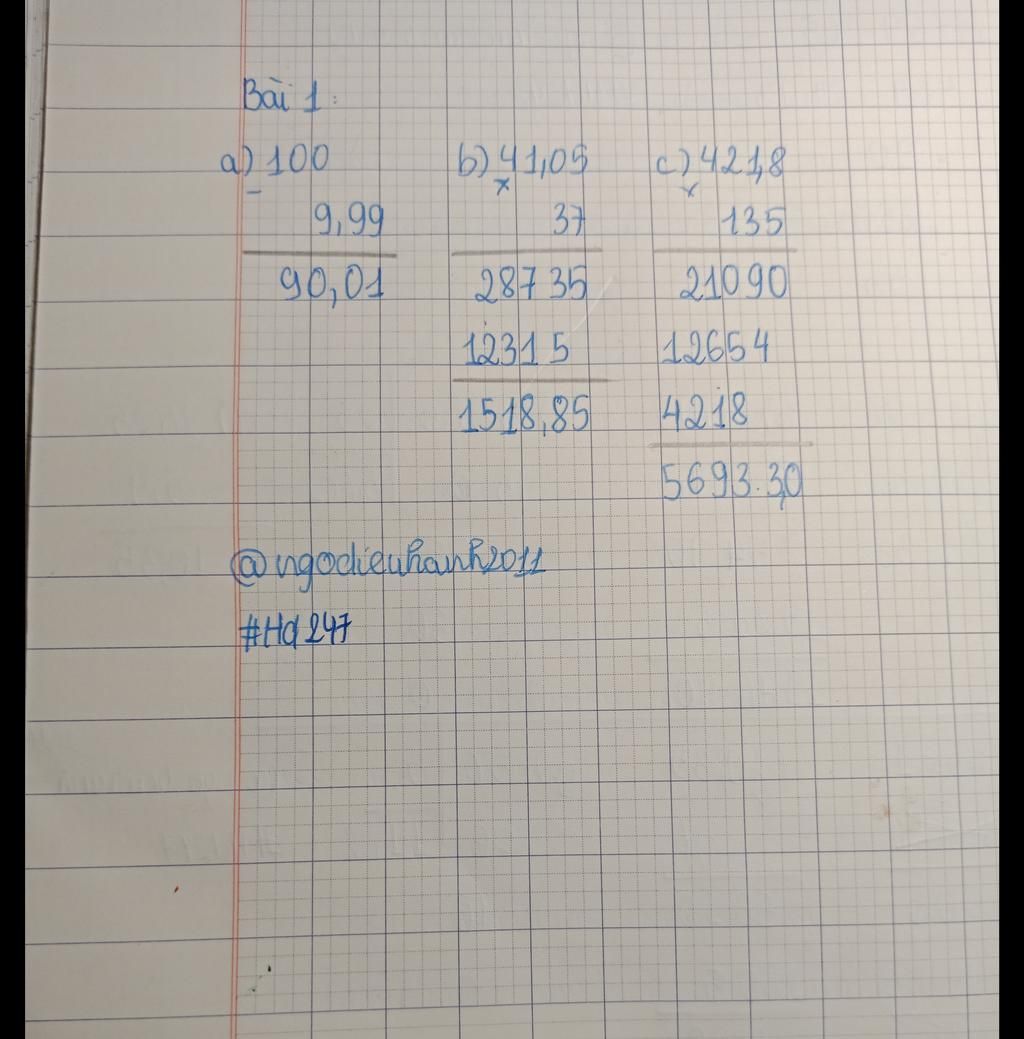 Bài 1:
a) 100 b) 41,05 c) 421,8
- x x
9,99 37 135
90,01 28735 21090
12315 12654
1518,85 4218
5693.3,0
@ngodieuhanh2011
#Hd247